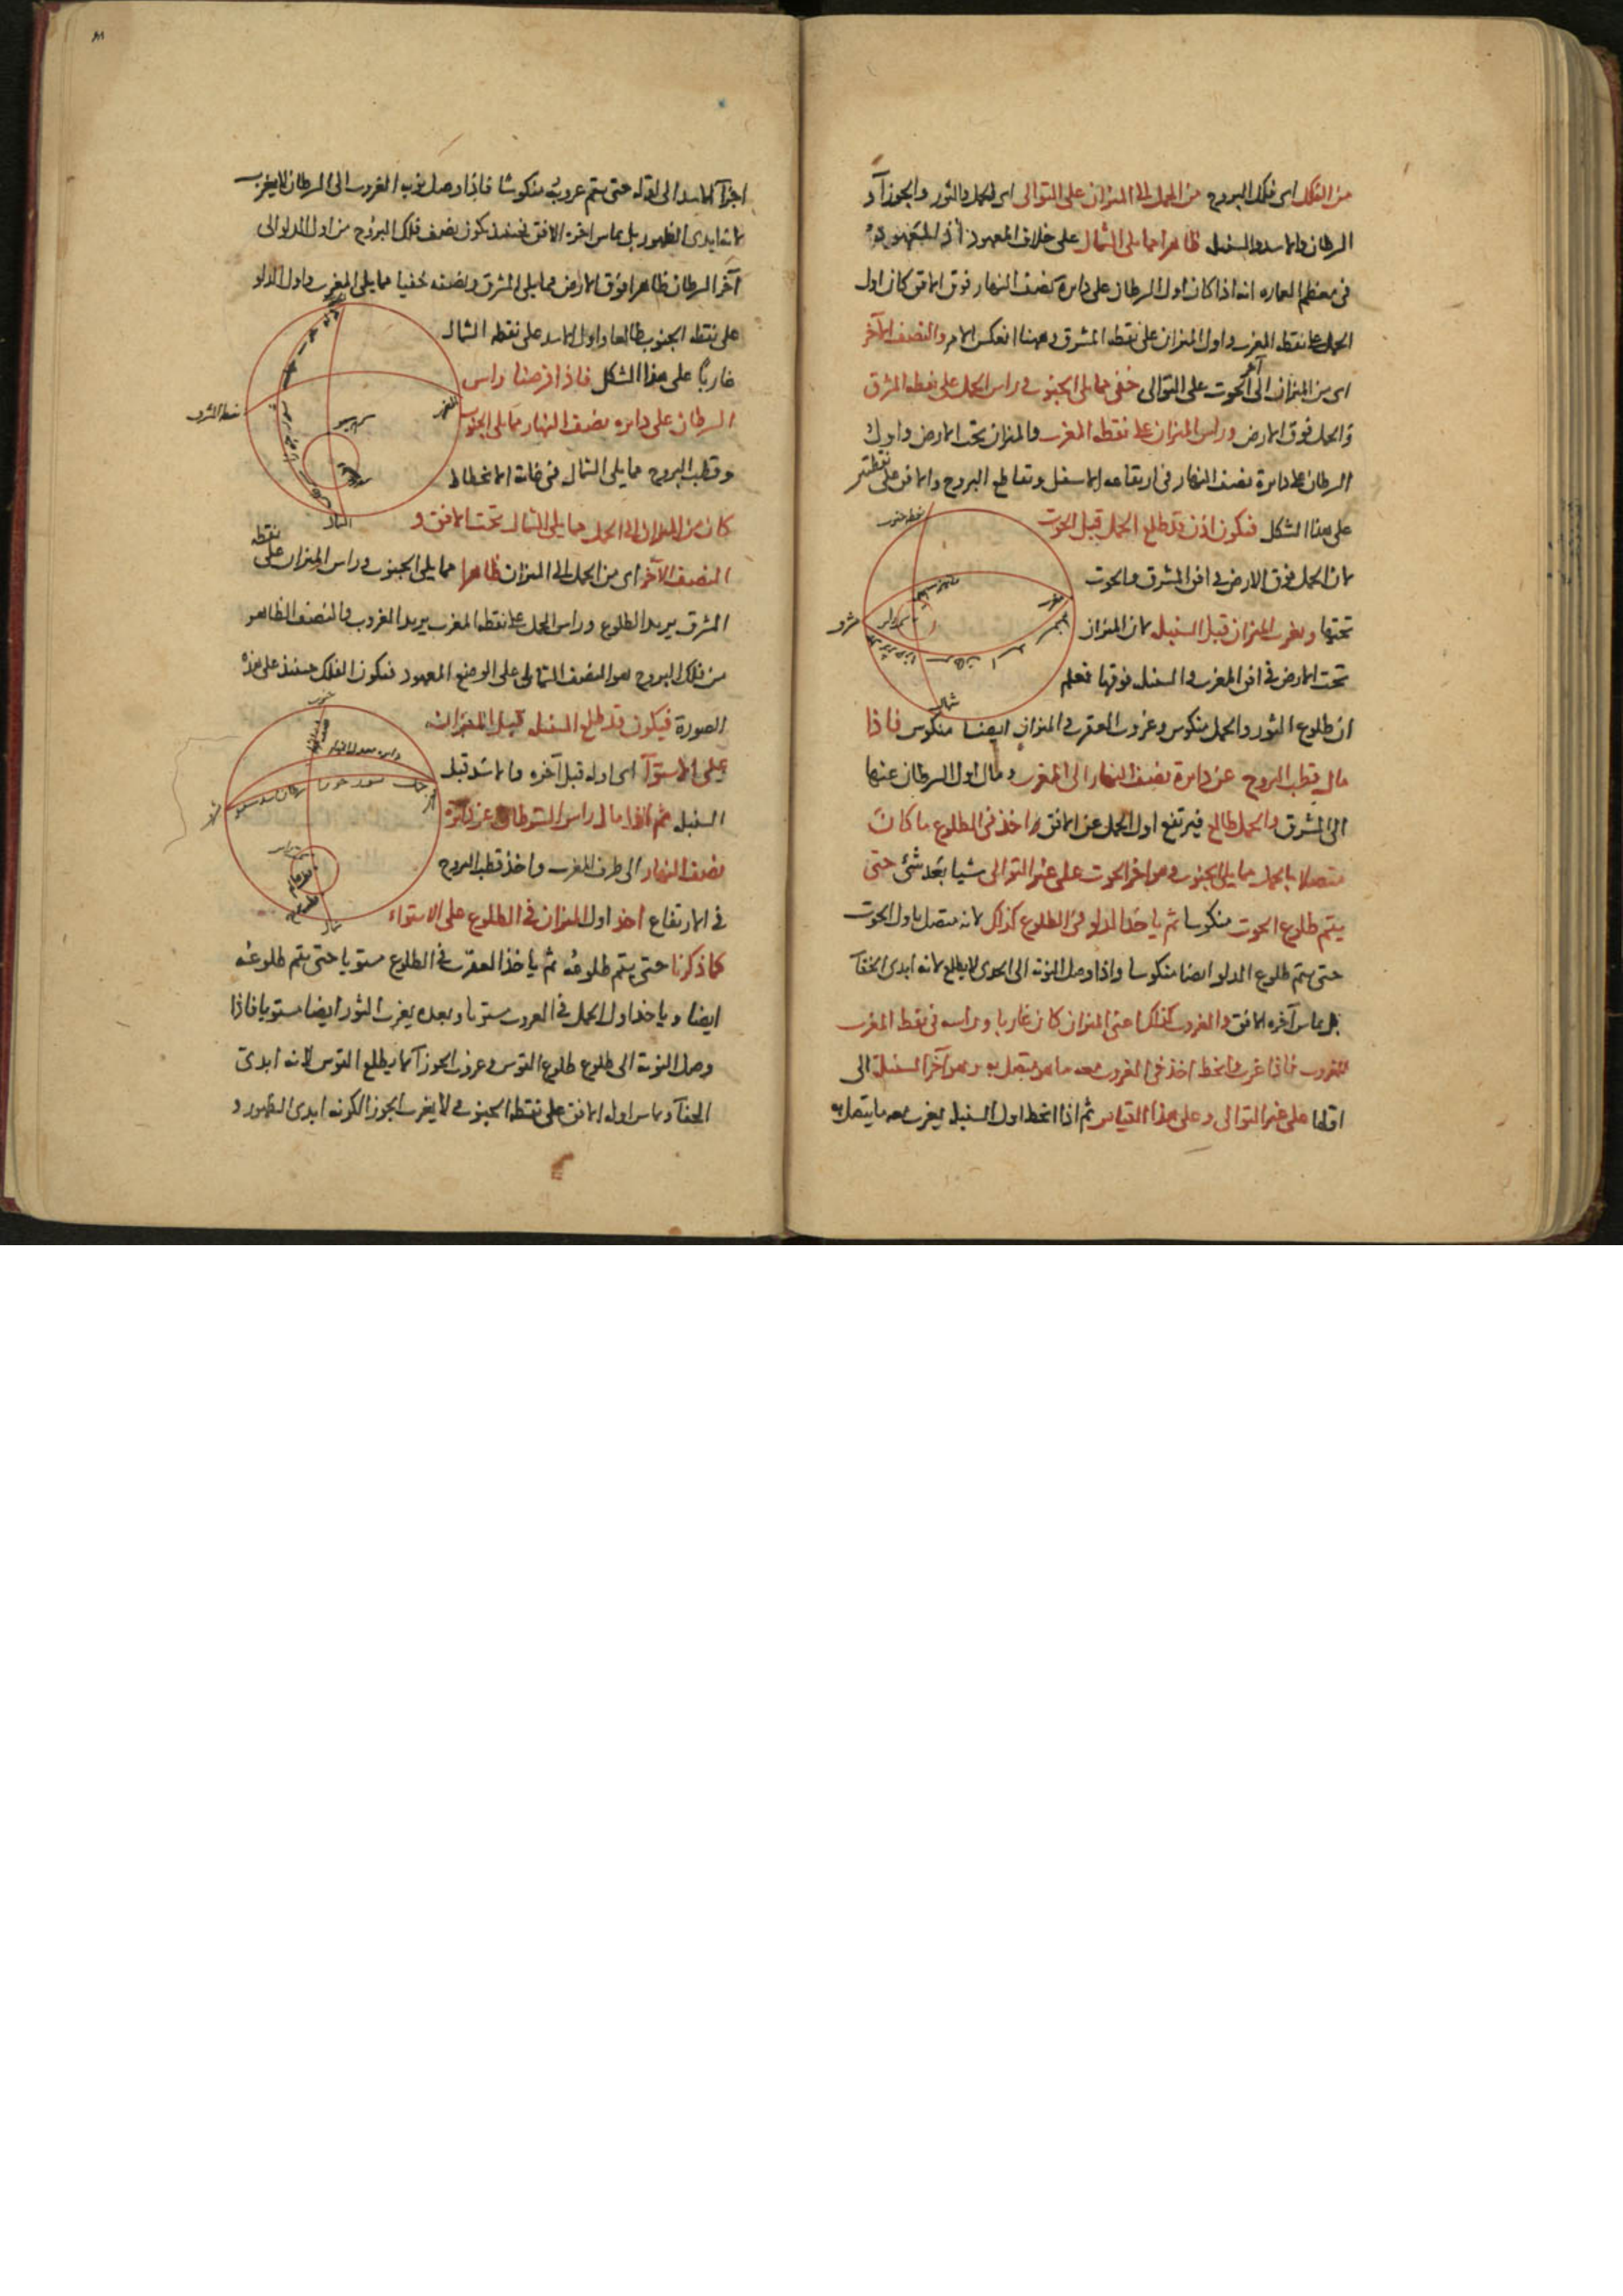 من الفلك اى فلك البروج من الحمل الى الميزان على التوالى اى الحمل والثور والجوزآ و
السرطان والاسد والسنبله ظاهرا مما يلى الشمال على خلاف المعهود اذ المعهود
فى معظم العماره انه اذا كان اول السرطان على دايرة نصف النهار فوق الافق كان اول
الحمل على نقطه المغرب واول الميزان على نقطه المشرق وههنا انعكس الامر والنصف الآخر
اى من الميزان الى آخر الحوت على التوالى خفى مما يلى الجنوب وراس الحمل على نقطه المشرق
والحمل فوق الارض وراس الميزان على نقطه المغرب والميزان تحت الارض واول
السرطان على دايرة نصف النهار فى ارتفاعه الاسفل وتقاطع البروج والافق على نقطتى
على هذا الشكل فيكون اذن قد طلع الحمل قبل الحوت
نقطه جنوب
لان الحمل فوق الارض فى افق المشرق والحوت
تحتها ويغرب الميزان قبل السنبله لان الميزان
مشرق
تحت الارض فى افق المغرب والسنبله فوقها فعلم
شمال
ان طلوع الثور والحمل منكوس وغروب العقرب والميزان ايضا منكوس فاذا
مال قطب البروج عن دايرة نصف النهار الى المغرب ومال اول السرطان عنها
الى المشرق والحمل طالع فيرتفع اول الحمل عن الافق واخذ فى الطلوع ما كان
متصلا بالحمل مما يلى الجنوب وهو اخر الحوت على غير التوالى شيا بعد شئ حتى
يتم طلوع الحوت منكوسا ثم ياخذ الدلو فى الطلوع كذلك لانه متصل باول الحوت
حتى يتم طلوع الدلو ايضا منكوسا واذا وصل النوبة الى الجدى لا يطلع لانه ابدى الخفآ
بل يماس آخره الافق والغروب كذلك اعنى الميزان كان غاربا وراسه فى نقطة المغرب
للغروب فاذا غرب وانحط اخذ فى الغروب معه ما هو متصل به وهو آخر السنبلة الى
اولها على غير التوالى وعلى هذا القياس ثم اذا انحط اول السنبله يغرب معه ما يتصل به
اجزآ الاسد الى اوله حتى يتم غروبه منكوسا فاذا وصل نوبة الغروب الى السرطان لا يغرب
لانه ابدى الظهور بل يماس اخره الافق فحينئذ يكون نصف فلك البروج من اول الدلو الى
آخر السرطان ظاهرا فوق الارض مما يلى المشرق ونصفه خفيا مما يلى المغرب واول الدلو
على نقطه الجنوب طالعا واول الاسد على نقطه الشمال
غاربا على هذا الشكل فاذا فرضنا راس
نقطه المشرق
السرطان على دايره نصف النهار مما يلى الجنوب
وقطب البروج مما يلى الشمال فى غاية الانحطاط
الشمال
كان من الميزان الى الحمل مما يلى الشمال تحت الافق و
النصف الآخر اى من الحمل الى الميزان ظاهرا مما يلى الجنوب وراس الميزان على نقطه
المشرق يريد الطلوع وراس الحمل على نقطه المغرب يريد الغروب والنصف الظاهر
من فلك البروج هو النصف الشمالى على الوضع المعهود فيكون الفلك حينئذ على هذه
جنوب
الصورة فيكون قد طلع السنبله قبل الميزان
دايره معدل النهار
على الاستوآ اى اوله قبل آخره والاسد قبل
السنبله ثم اذا مال راس السرطان عن دايرة
نصف النهار الى طرف المغرب واخذ قطب البروج
فى الارتفاع اخذ اول الميزان فى الطلوع على الاستواء
كما ذكرنا حتى يتم طلوعه ثم ياخذ العقرب فى الطلوع مستويا حتى يتم طلوعه
ايضا وياخذ اول الحمل فى الغروب مستويا وبعده يغرب الثور ايضا مستويا فاذا
وصل النوبة الى طلوع القوس وغروب الجوزآ لا يطلع القوس لانه ابدى
الخفآ ويماس اوله الافق على نقطه الجنوب ولا يغرب الجوزا لكونه ابدى الظهور و